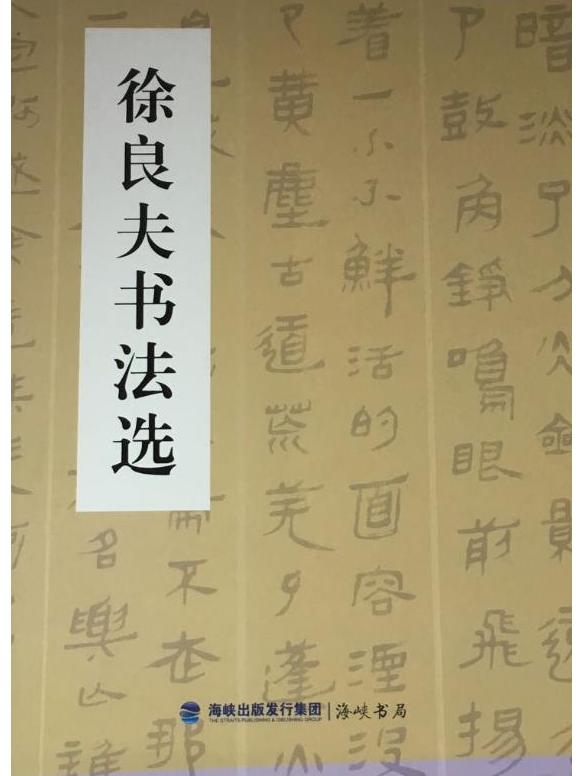 徐良夫书法选
暗淡了刀光劍影遠
了鼓角錚鳴眼前飛揚
着一个个鮮活的面容湮没
了黄塵古道荒芜了烽
不走那
名興亡誰
海峡出版发行集团
THE STRAITS PUBLISHING & DISTRIBUTING GROUP
海峡书局